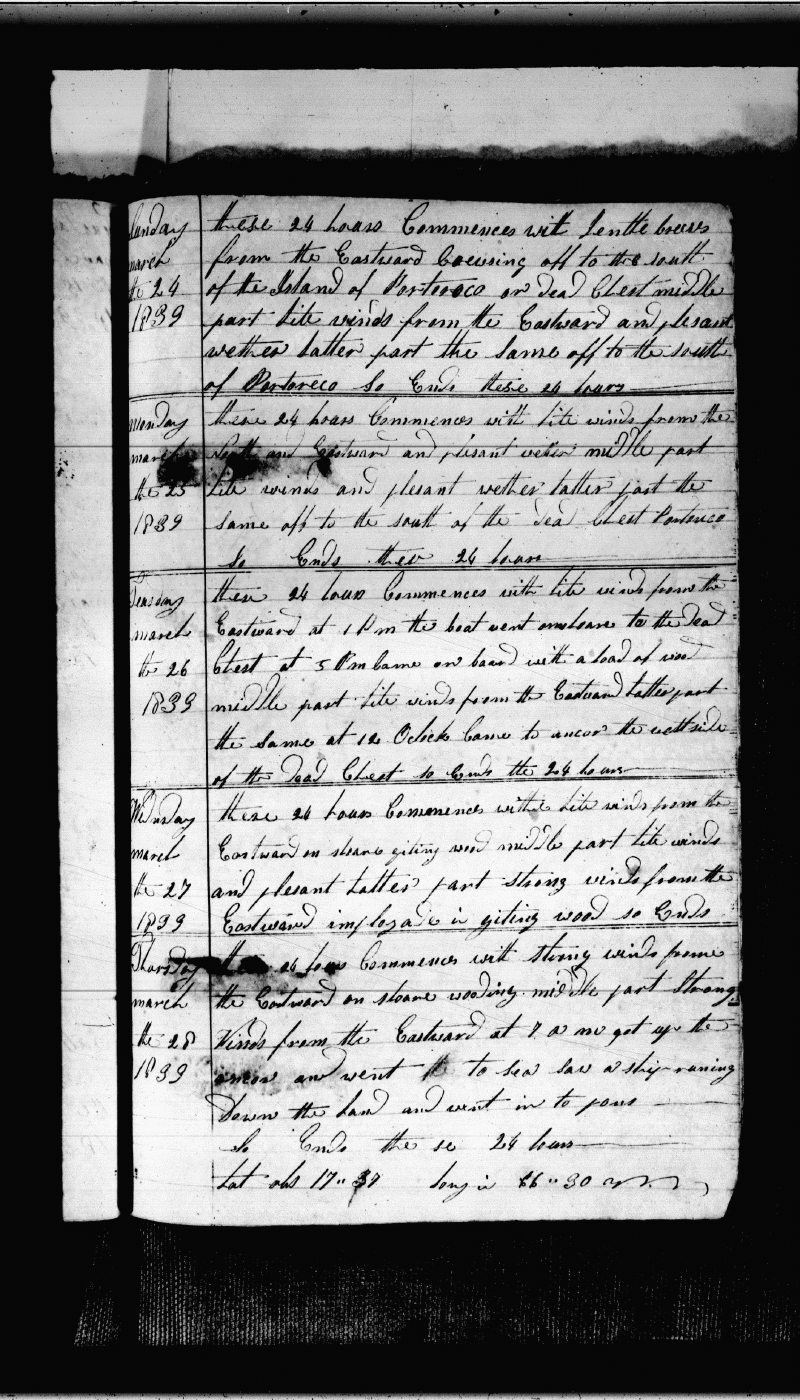 Sunday these 24 hours Commences wit Jentle breses
march from the Eastward Creusing off to the south
the 24 of the Island of Portoreco or dead Chest middle
1839 part Lite winds from the Eastward and plesant
wether Latter part the Same off to the south
of Portoreco So Ends these 24 hours
monday these 24 hours Commences with Lite winds from the
march South and Eastward and plesant wether middle part
the 25 Lite winds and plesant wether latter part the
1839 same off to the south of the dead Chest Portoreco
So Ends these 24 hours
Teusday these 24 hours Commences with Lite winds from the
march Eastward at 1 P m the boat went onshore to the dead
the 26 Chest at 5 P m Came on board with a load of wood
1839 middle part Lite winds from the Eastward Latter part
the Same at 12 Oclock Came to ancor the west side
of the dead Chest so Ends the 24 hours
Wednsday these 24 hours Commences withe Lite winds from the
march Eastward on shore giting wood middle part Lite winds
the 27 and plesant Latter part strong winds from the
1839 Eastward imployade in giting wood so Ends
Thorsday these 24 hours Commences with strong winds frome
march the Eastward on shore wooding middle part Strong
the 28 Winds from the Eastward at 7 a m got up the
1839 ancor and went to sea saw a ship runing
Down the Land and went in to
So Ends the se 24 hours
Lat obs 17" 37 Long in 66" 30